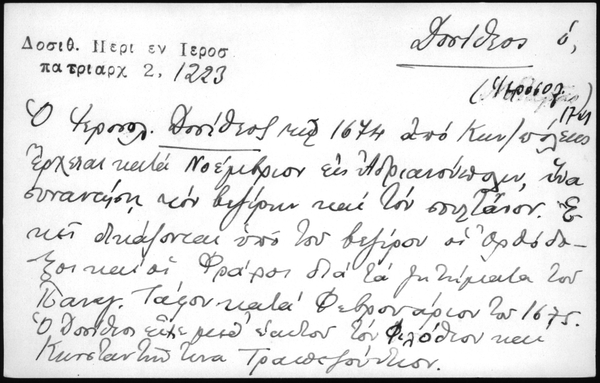 Δοσιθ. Περι εν Ιεροσ
πατριαρχ 2, 1223
Δοσίθεος ὁ,
(Ἱεροσολ.
Ὁ Ἱεροσολ. Δοσίθεος τῷ 1674 ἀπό Κων/πόλεως
ἔρχεται κατά Νοέμβριον εἰς Ἀδριανούπολιν, ἵνα
συναντήσῃ τόν βεζίρην καί τόν σουλτᾶνον. Ἐ
κεῖ δικάζονται ὑπό τοῦ βεζίρου οἱ Ὀρθόδο-
ξοι καί οἱ Φράροι διά τά ζητήματα τοῦ
Παναγ. Τάφου κατά Φεβρουάριον τοῦ 1675.
Ὁ Δοσίθεος εἶχε μεθ' ἑαυτοῦ τόν Φιλόθεον καί
Κωνσταντῖνον τινα Τραπεζούντιον.